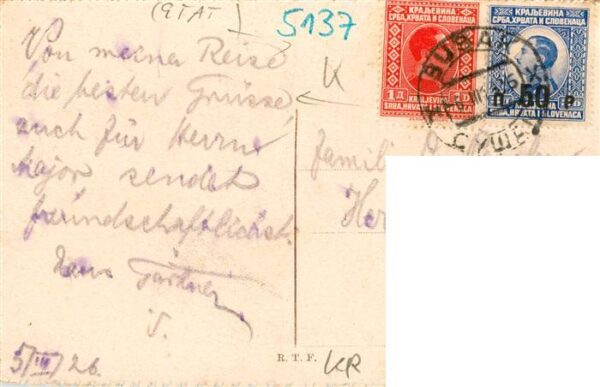 (ЯTAT
5137
K
Von meiner Reise
die besten Grüsse,
auch für Herrn
Major sendet
freundschaftlichst
Hans Gärtner
5/III/26.
КРАЉЕВИНА
СРБА, ХРВАТА И СЛОВЕНАЦА
1 Д
1 D
KRALJEVINA
SRBA, HRVATA I SLOVENACA
КРАЉЕВИНА
СРБА, ХРВАТА И СЛОВЕНАЦА
П. 50 P
SRBA, HRVATA I SLOVENACA
Famili
Her
R. T. F.
KR